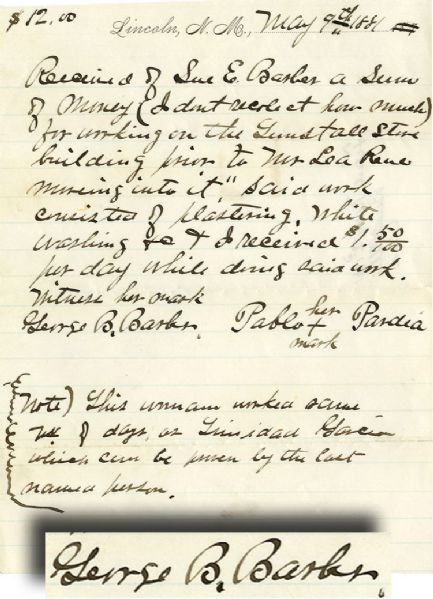 $12.00
Lincoln, N. M., May 9th 1881
Received of Sue E. Barber a Sum
of Money (I dont reclect how much)
for working on the Tunstall Store
building prior to Mr Lea Rene
moveing into it," Said work
consisted of plastering, White
washing &c & I received $1.50/100
per day while doing said work.
Witness her mark
George B. Barber. Pablo her + mark Pardia
Note) This woman worked same
No of days, as Trinidad Garcia
which can be proven by the last
named person.
George B. Barber.